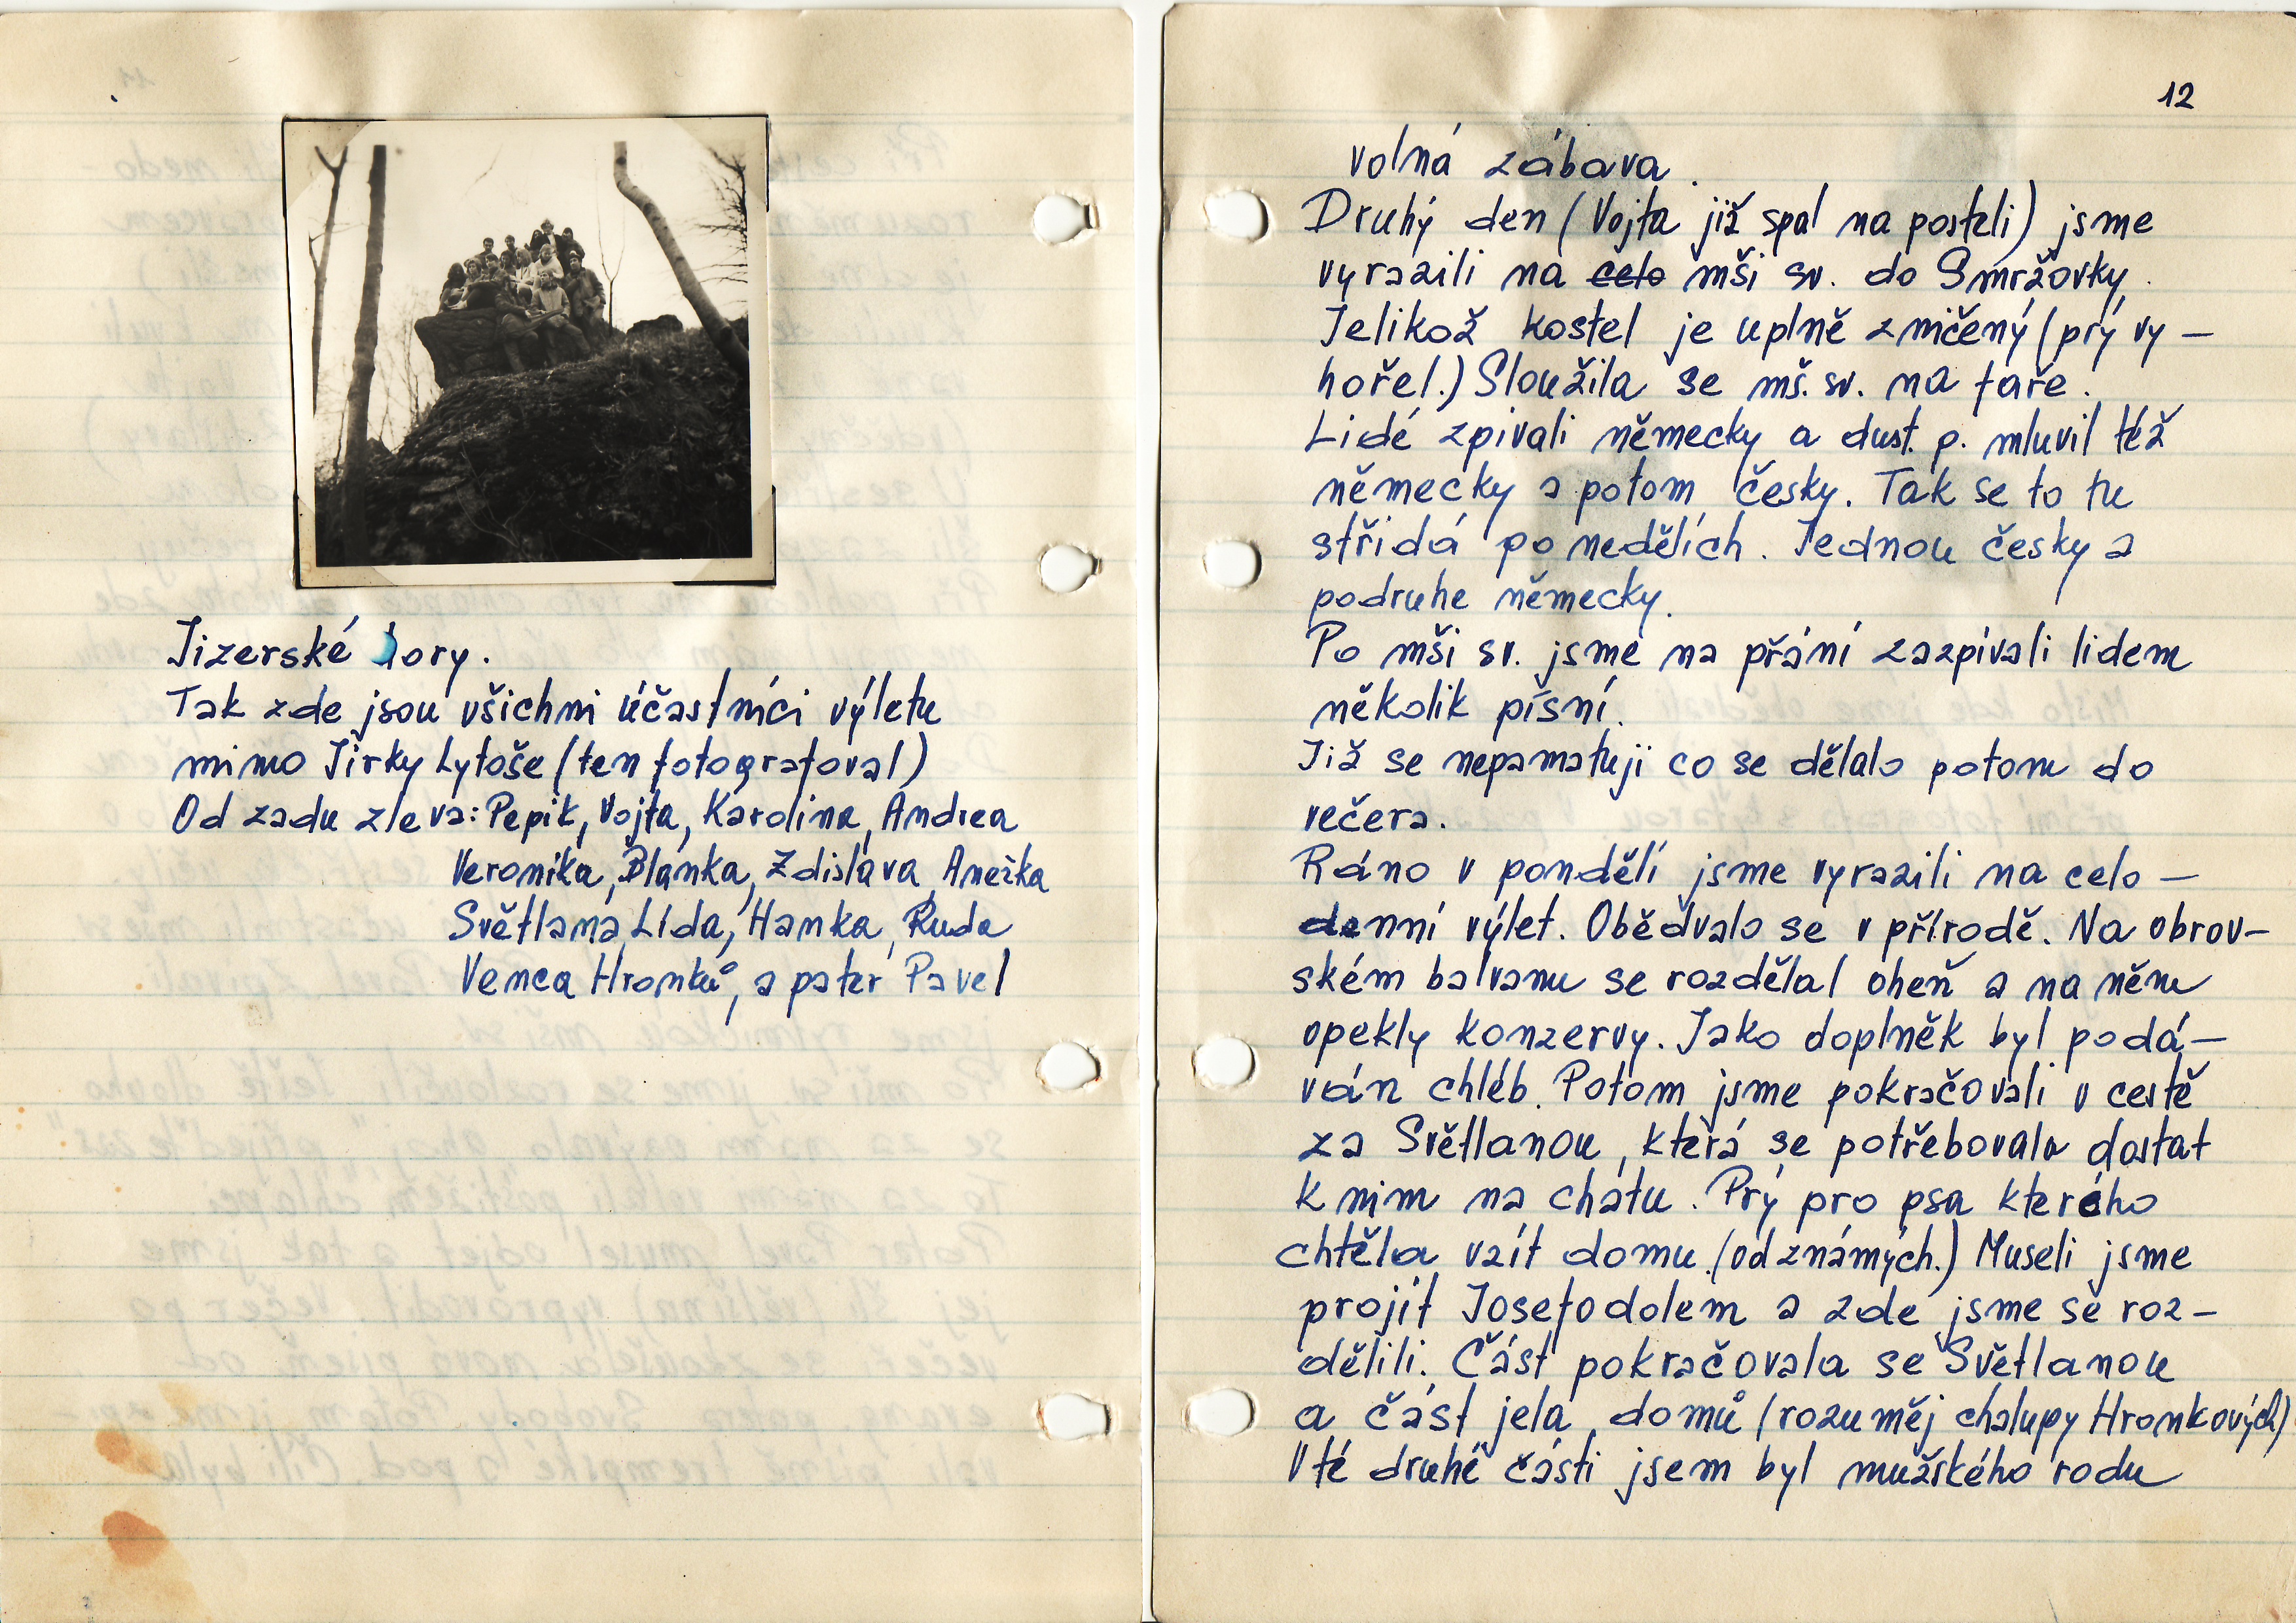 Jizerské hory.
Tak zde jsou všichni účastníci výletu
mimo Jirky Lytoše (ten fotografoval)
Od zadu zleva: Pepik, Vojta, Karolina, Andrea
Veronika, Blanka, Zdislava, Anežka
Světlana, Lída, Hanka, Ruda
Venca Hronků, a pater Pavel
12
volná zábava.
Druhý den (Vojta již spal na posteli) jsme
vyrazili na celo mši sv. do Smržovky.
Jelikož kostel je uplně zničený (prý vy-
hořel.) Sloužila se mš. sv. na faře.
Lidé zpivali německy a dust. p. mluvil též
německy a potom česky. Tak se to tu
střidá po nedělích. Jednou česky a
podruhe německy.
Po mši sv. jsme na přání zazpívali lidem
několik písní.
Již se nepamatuji co se dělalo potom do
večera.
Ráno v pondělí jsme vyrazili na celo-
denní výlet. Obědvalo se v přírodě. Na obrov-
ském balvanu se rozdělal oheň a na něm
opekly konzervy. Jako doplněk byl podá-
ván chléb. Potom jsme pokračovali v cestě
za Světlanou, která se potřebovala dostat
k nim na chatu. Prý pro psa kterého
chtěla vzít domu (od známých.) Museli jsme
projít Josefodolem a zde jsme se roz-
dělili. Část pokračovala se Světlanou
a část jela domů (rozuměj chalupy Hronkových)
V té druhé části jsem byl mužského rodu